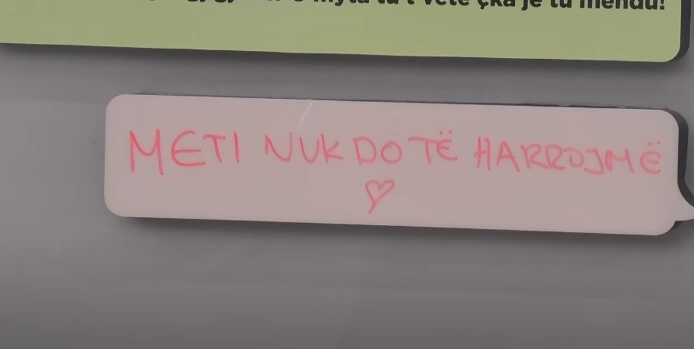 t'vetë çka je tu mendu!
METI NUK DO TË HARROJMË
♡